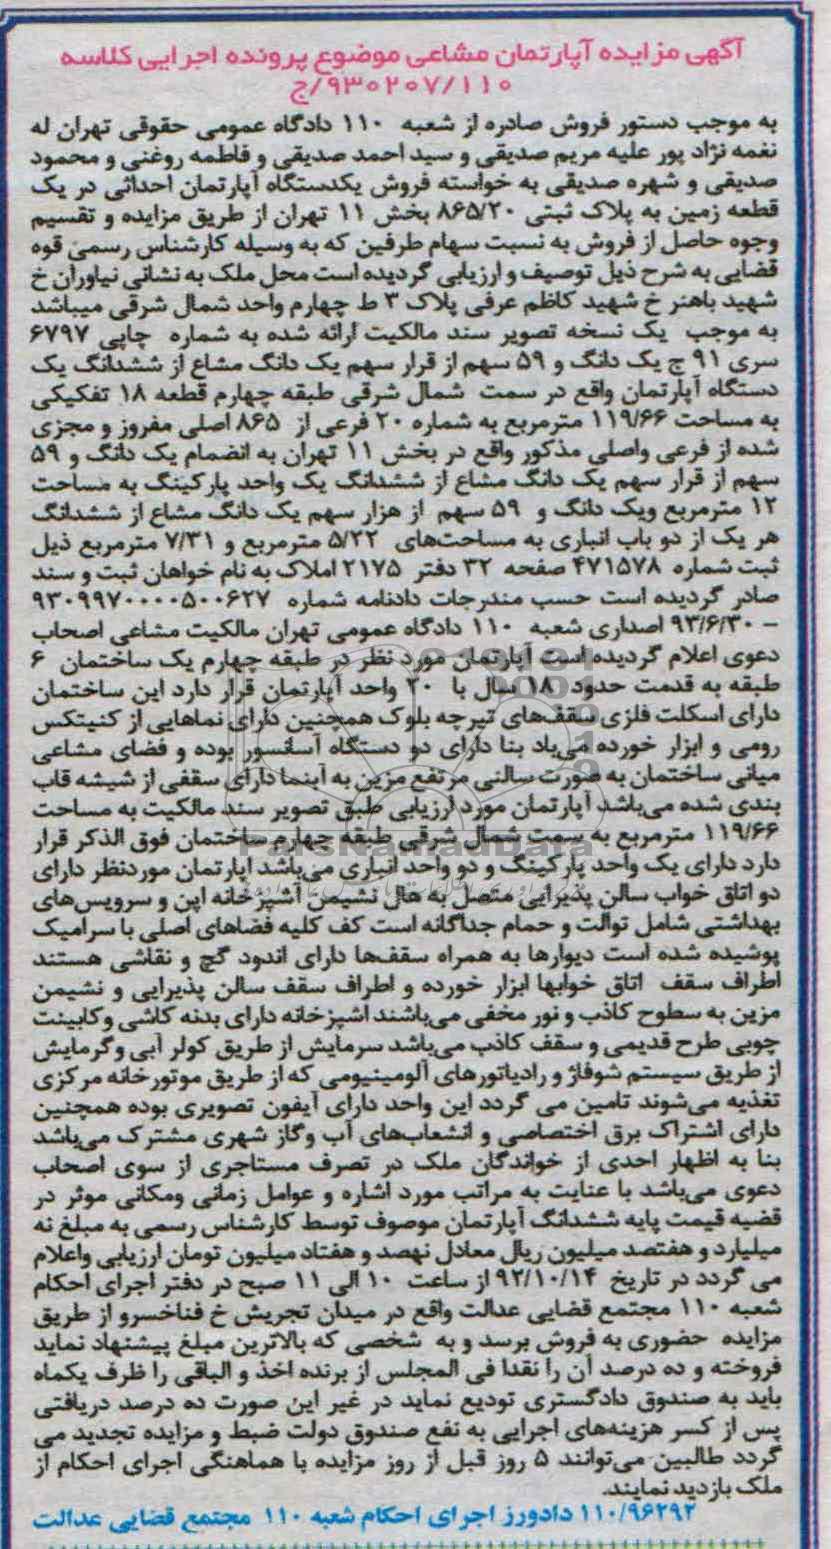 آگهی مزایده آپارتمان مشاعی موضوع پرونده اجرایی کلاسه
۹۳۰۲۰۷/۱۱۰/ج
به موجب دستور فروش صادره از شعبه ۱۱۰ دادگاه عمومی حقوقی تهران له
نغمه نژاد پور علیه مریم صدیقی و سید احمد صدیقی و فاطمه روغنی و محمود
صدیقی و شهره صدیقی به خواسته فروش یکدستگاه آپارتمان احداثی در یک
قطعه زمین به پلاک ثبتی ۸۶۵/۲۰ بخش ۱۱ تهران از طریق مزایده و تقسیم
وجوه حاصل از فروش به نسبت سهام طرفین که به وسیله کارشناس رسمی قوه
قضایی به شرح ذیل توصیف و ارزیابی گردیده است محل ملک به نشانی نیاوران خ
شهید باهنر خ شهید کاظم عرفی پلاک ۳ ط چهارم واحد شمال شرقی میباشد
به موجب یک نسخه تصویر سند مالکیت ارائه شده به شماره چاپی ۶۷۹۷
سری ۹۱ ج یک دانگ و ۵۹ سهم از قرار سهم یک دانگ مشاع از ششدانگ یک
دستگاه آپارتمان واقع در سمت شمال شرقی طبقه چهارم قطعه ۱۸ تفکیکی
به مساحت ۱۱۹/۶۶ مترمربع به شماره ۲۰ فرعی از ۸۶۵ اصلی مفروز و مجزی
شده از فرعی واصلی مذکور واقع در بخش ۱۱ تهران به انضمام یک دانگ و ۵۹
سهم از قرار سهم یک دانگ مشاع از ششدانگ یک واحد پارکینگ به مساحت
۱۲ مترمربع ویک دانگ و ۵۹ سهم از هزار سهم یک دانگ مشاع از ششدانگ
هر یک از دو باب انباری به مساحت‌های ۵/۲۲ مترمربع و ۷/۳۱ مترمربع ذیل
ثبت شماره ۴۷۱۵۷۸ صفحه ۳۲ دفتر ۲۱۷۵ املاک به نام خواهان ثبت و سند
صادر گردیده است حسب مندرجات دادنامه شماره ۹۳۰۹۹۷۰۰۰۰۵۰۰۶۲۷
– ۹۳/۶/۳۰ اصداری شعبه ۱۱۰ دادگاه عمومی تهران مالکیت مشاعی اصحاب
دعوی اعلام گردیده است آپارتمان مورد نظر در طبقه چهارم یک ساختمان ۶
طبقه به قدمت حدود ۱۸ سال با ۲۰ واحد آپارتمان قرار دارد این ساختمان
دارای اسکلت فلزی سقف‌های تیرچه بلوک همچنین دارای نماهایی از کنیتکس
رومی و ابزار خورده می‌باد بنا دارای دو دستگاه آسانسور بوده و فضای مشاعی
میانی ساختمان به صورت سالنی مرتفع مزین به آبنما دارای سقفی از شیشه قاب
بندی شده می‌باشد آپارتمان مورد ارزیابی طبق تصویر سند مالکیت به مساحت
۱۱۹/۶۶ مترمربع به سمت شمال شرقی طبقه چهارم ساختمان فوق الذکر قرار
دارد دارای یک واحد پارکینگ و دو واحد انباری می‌باشد آپارتمان موردنظر دارای
دو اتاق خواب سالن پذیرایی متصل به هال نشیمن آشپزخانه اپن و سرویس‌های
بهداشتی شامل توالت و حمام جداگانه است کف کلیه فضاهای اصلی با سرامیک
پوشیده شده است دیوارها به همراه سقف‌ها دارای اندود گچ و نقاشی هستند
اطراف سقف اتاق خوابها ابزار خورده و اطراف سقف سالن پذیرایی و نشیمن
مزین به سطوح کاذب و نور مخفی می‌باشند اشپزخانه دارای بدنه کاشی وکابینت
چوبی طرح قدیمی و سقف کاذب می‌باشد سرمایش از طریق کولر آبی وگرمایش
از طریق سیستم شوفاژ و رادیاتورهای آلومینیومی که از طریق موتورخانه مرکزی
تغذیه می‌شوند تامین می گردد این واحد دارای آیفون تصویری بوده همچنین
دارای اشتراک برق اختصاصی و انشعاب‌های آب وگاز شهری مشترک می‌باشد
بنا به اظهار احدی از خواندگان ملک در تصرف مستاجری از سوی اصحاب
دعوی می‌باشد با عنایت به مراتب مورد اشاره و عوامل زمانی ومکانی موثر در
قضیه قیمت پایه ششدانگ آپارتمان موصوف توسط کارشناس رسمی به مبلغ نه
میلیارد و هفتصد میلیون ریال معادل نهصد و هفتاد میلیون تومان ارزیابی واعلام
می گردد در تاریخ ۹۲/۱۰/۱۴ از ساعت ۱۰ الی ۱۱ صبح در دفتر اجرای احکام
شعبه ۱۱۰ مجتمع قضایی عدالت واقع در میدان تجریش خ فناخسرو از طریق
مزایده حضوری به فروش برسد و به شخصی که بالاترین مبلغ پیشنهاد نماید
فروخته و ده درصد آن را نقدا فی المجلس از برنده اخذ و الباقی را ظرف یکماه
باید به صندوق دادگستری تودیع نماید در غیر این صورت ده درصد دریافتی
پس از کسر هزینه‌های اجرایی به نفع صندوق دولت ضبط و مزایده تجدید می
گردد طالبین می‌توانند ۵ روز قبل از روز مزایده با هماهنگی اجرای احکام از
ملک بازدید نمایند.
۱۱۰/۹۶۲۹۲ دادورز اجرای احکام شعبه ۱۱۰ مجتمع قضایی عدالت
ParsNamadData